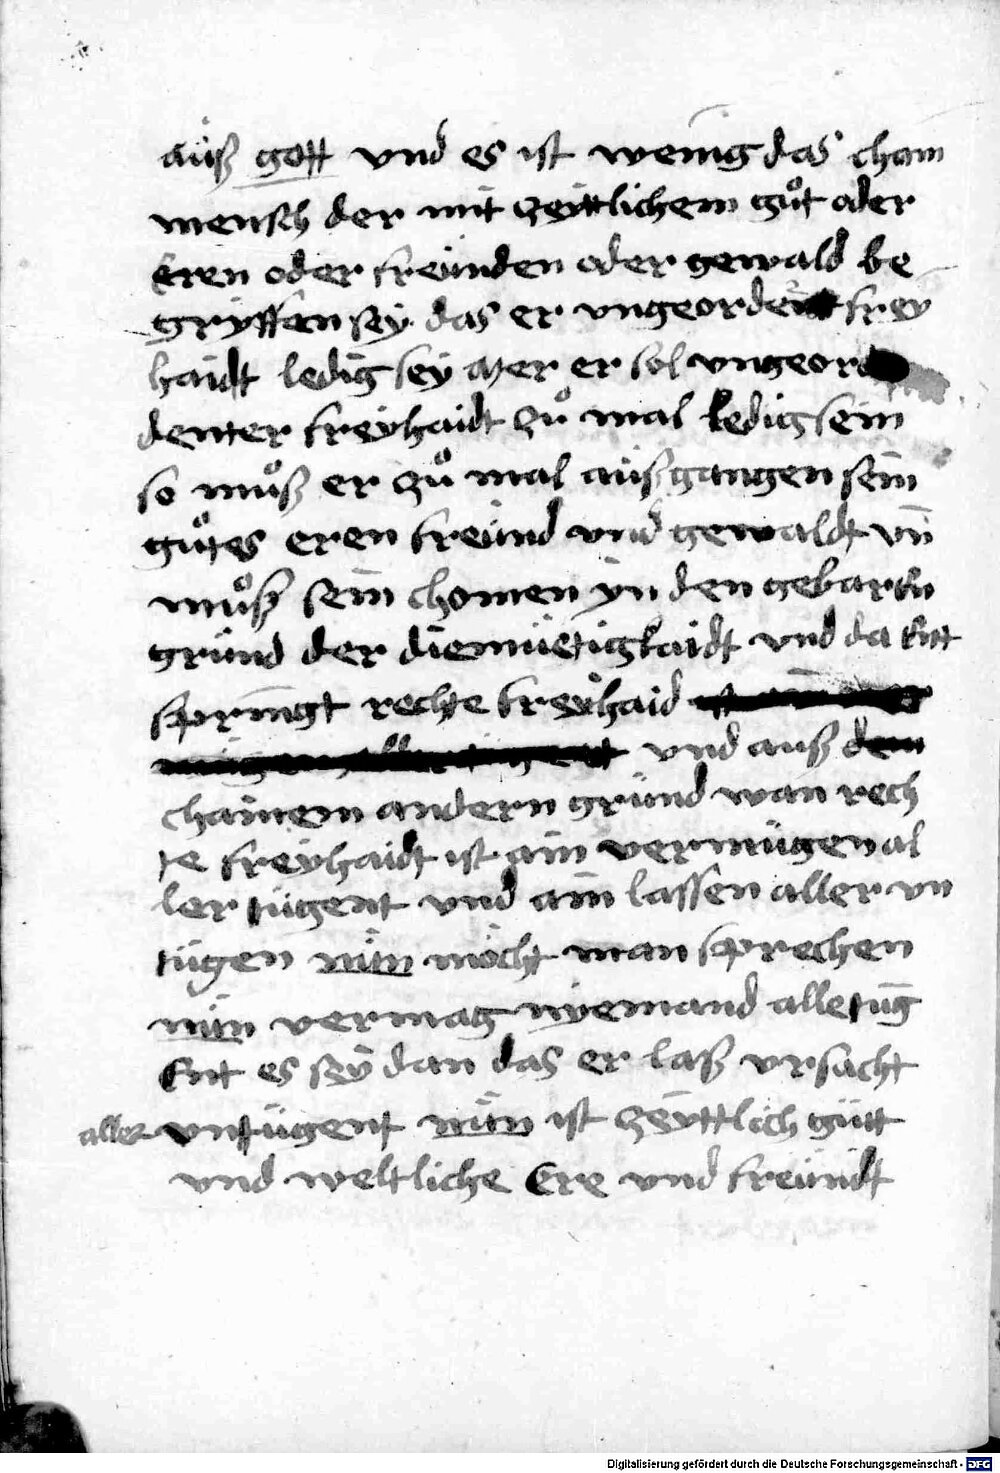 auß gott vnd es ist wenig das cham
mensch der mit zeyttlichem gůt oder
Eren oder freünden oder gewald be
gryffen sey das er vngeordent frey
haidt ledig sey Mer er sol vngeord
denter freyhaidt zů mal ledig sein
so můß er zů mal außgangen sein
gůtes eren freünd vnd gewaldt vn̄
můß sein chomen yn den gebarEn
gründ der diemüetigkaidt vnd da Entt
springt rechte freÿhaid
vnd auß dem
chainem andern gründ wan rech
te freyhaidt ist ain vermügen al
ler tügent vnd ain lassen aller vn
tügen nün möcht man sprechen
nün vermag nyemand alle tüg
Ent es seÿ dan das er laß vrsacht
aller vntügent nün ist zeyttlich gütt
vnd weltliche Ere vnd freündt
Digitalisierung gefördert durch die Deutsche Forschungsgemeinschaft - DFG